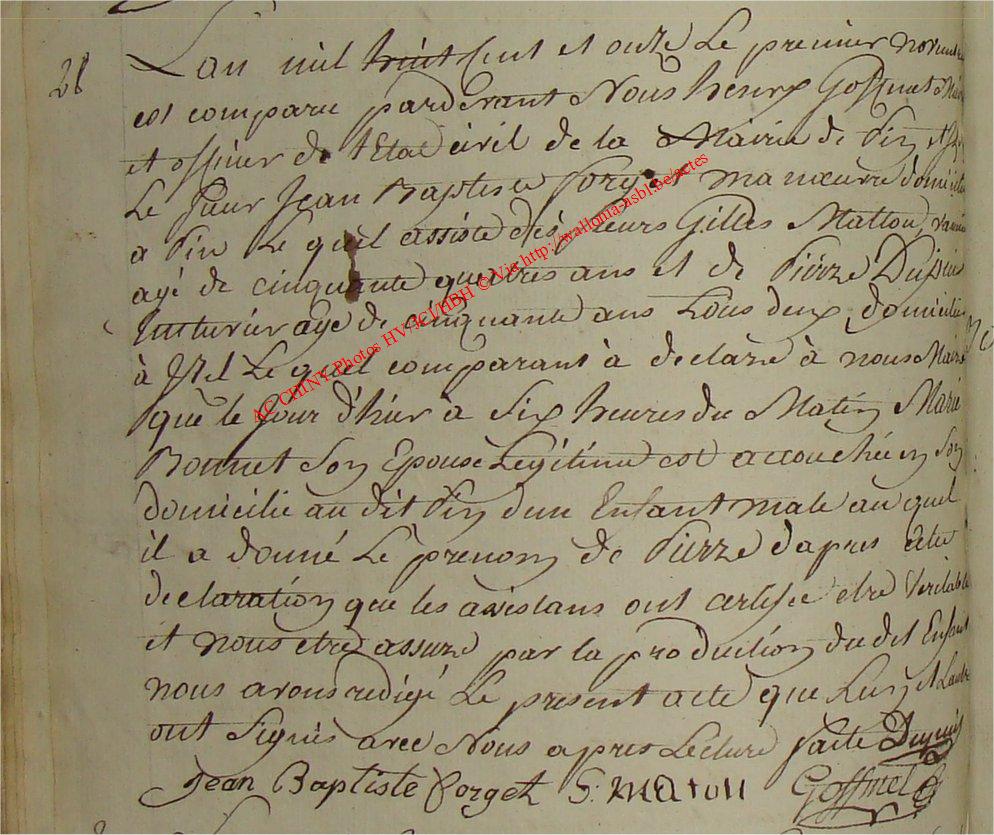 28
L'an mil huit Cent et onze Le premier novembre
est comparu pardevant Nous henry Goffinet Maire
et officier de l'Etat civil de la Mairie de Pin et Izel
Le sieur Jean Baptiste Forget manœuvre domicilié
a Pin Le quel assisté des sieurs Gilles Mattou
ayé de cinquante quattres ans et de Pierre Dupuis
Cutturier ayé de cinquante ans tous deux domicilié
à Izel Le quel comparant à declaré à nous Maire
que le jour d'hier à six heures du Matin Marie
Bonnet son Epouse Légitime est accouchée en son
domicilié au dit Pin d'un Enfant male au quel
il a donné Le prenom de Pierre d'apres cette
declaration que les assistans ont certifiée etre veritable
et nous etre assuré par la production du dit Enfant
nous avons redigé Le present acte que L'un et L'autre
ont signés avec Nous apres Lecture faite Dupuis
Jean Baptiste Forget G. Matou Goffinet
AC CHINY Photos HV/ICI/HBH © Via http://wallonia-asbl.be/actes